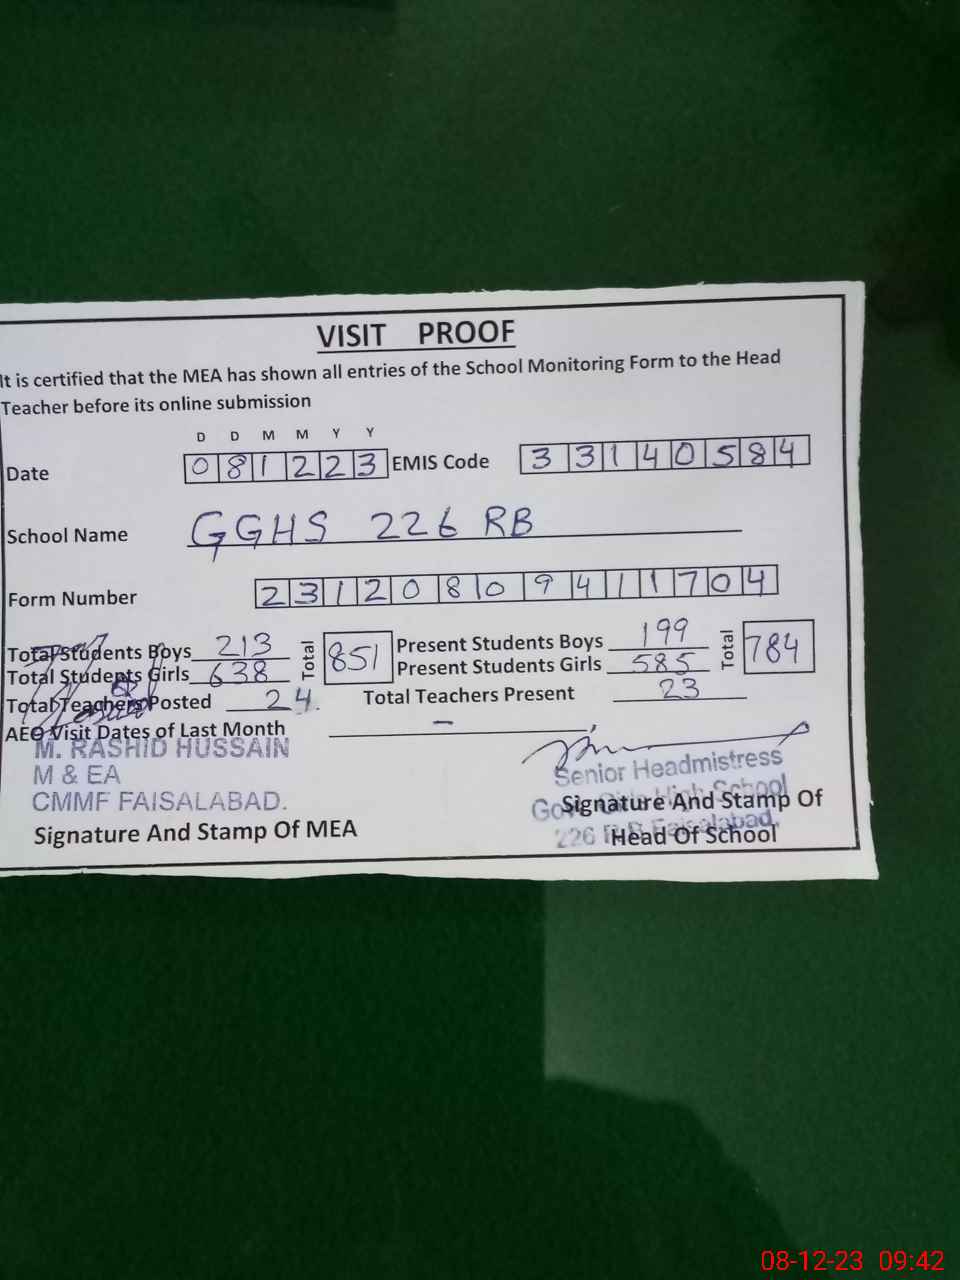 VISIT PROOF
It is certified that the MEA has shown all entries of the School Monitoring Form to the Head
Teacher before its online submission
D D M M Y Y
Date 0 8 1 2 2 3 EMIS Code 3 3 1 4 0 5 8 4
School Name GGHS 226 RB
Form Number 2 3 1 2 0 8 0 9 4 1 1 7 0 4
Total Students Boys 213 Total 851 Present Students Boys 199 Total 784
Total Students Girls 638 Present Students Girls 585
Total Teachers Posted 24 Total Teachers Present 23
AEO Visit Dates of Last Month –
M. RASHID HUSSAIN
M & EA
CMMF FAISALABAD.
Signature And Stamp Of MEA
Senior Headmistress
Govt. Girls High School
226 R.B Faisalabad.
Signature And Stamp Of
Head Of School
08-12-23 09:42